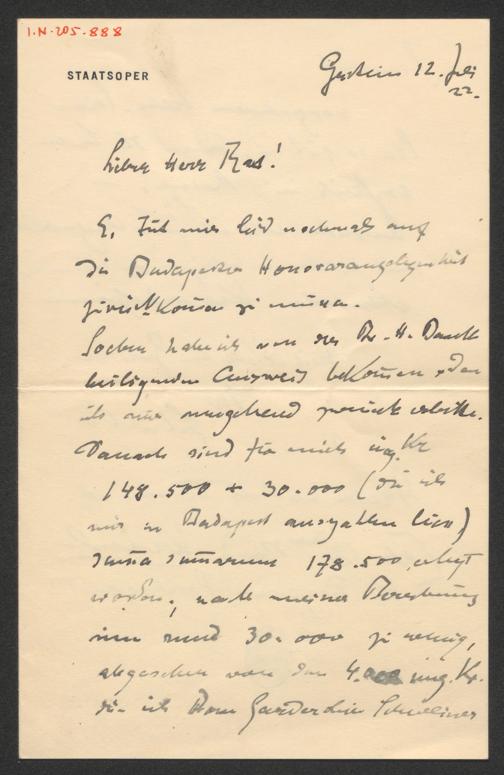 I.N. 205.888
STAATSOPER
Gastein 12. Juli
22.
Lieber Herr Rat!
Es tut mir leid nochmals auf
die Budapester Honorarangelegenheit
zurückkommen zu müssen.
Soeben habe ich von der Br. H. Bank
beiliegenden Ausweis bekommen, den
ich mir umgehend zurück erbitte.
Danach sind für mich ung. Kr
148.500 + 30.000 (die ich
mir in Budapest auszahlen liess)
summa summarum 178.500 erlegt
worden; nach meiner Berechnung
um rund 30.000 zu wenig,
abgesehen von den 4.000 ung. Kr.
die ich Herrn